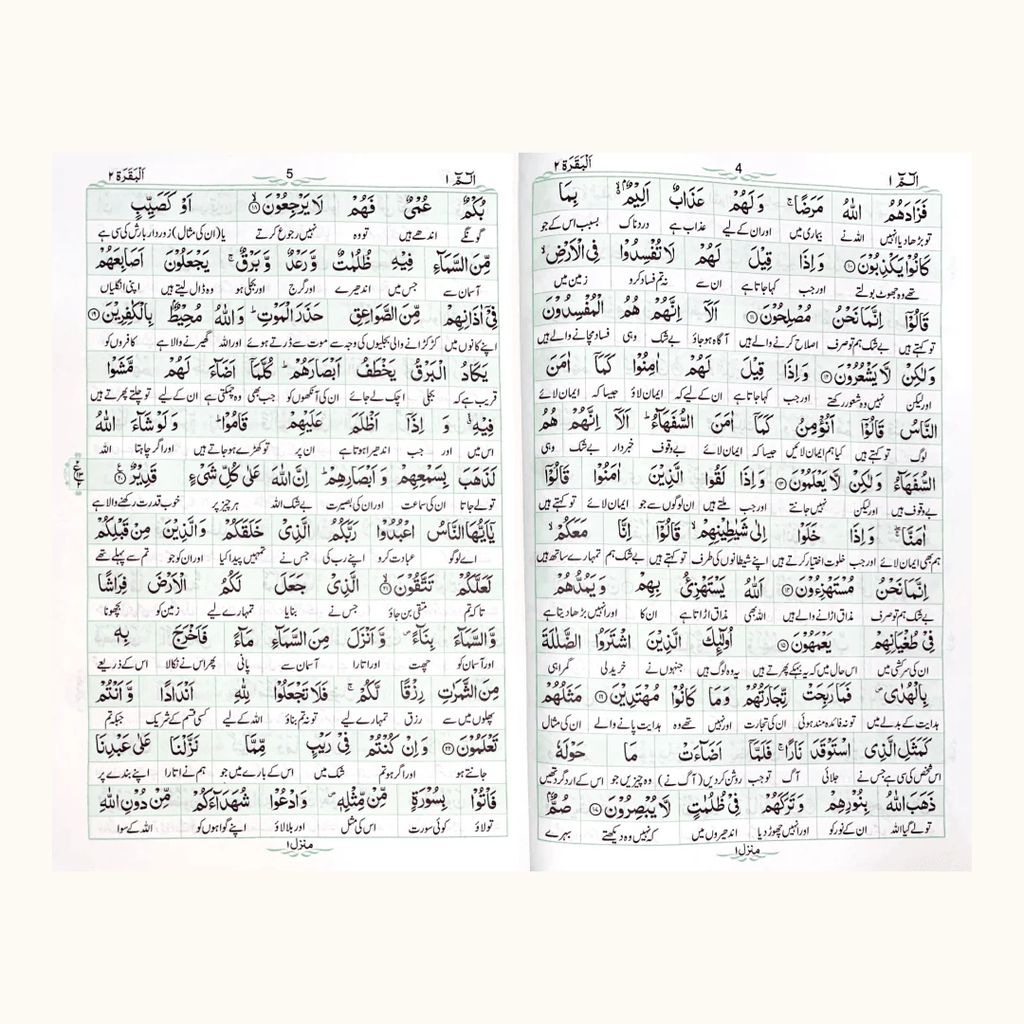 الٓمّٓ ۱
4
اَلْبَقَرَة ۲
فَزَادَهُمُ اللّٰهُ مَرَضًا ۚ وَ لَهُمْ عَذَابٌ اَلِیْمٌۢ ۙ بِمَا
تو بڑھا دیا انہیں اللہ نے بیماری میں اور ان کے لیے عذاب ہے دردناک بسبب اس کے جو
كَانُوْا یَكْذِبُوْنَ ⑩ وَ اِذَا قِیْلَ لَهُمْ لَا تُفْسِدُوْا فِی الْاَرْضِ ۙ
تھے وہ جھوٹ بولتے اور جب کہا جاتا ہے ان سے نہ تم فساد کرو زمین میں
قَالُوْۤا اِنَّمَا نَحْنُ مُصْلِحُوْنَ ⑪ اَلَاۤ اِنَّهُمْ هُمُ الْمُفْسِدُوْنَ
تو کہتے ہیں بے شک ہم تو صرف اصلاح کرنے والے ہیں آگاہ ہو جاؤ بے شک وہی فساد مچانے والے ہیں
وَ لٰكِنْ لَّا یَشْعُرُوْنَ ⑫ وَ اِذَا قِیْلَ لَهُمْ اٰمِنُوْا كَمَاۤ اٰمَنَ
اور لیکن نہیں وہ شعور رکھتے اور جب کہا جاتا ہے ان کے لیے کہ ایمان لاؤ جیسا کہ ایمان لائے
النَّاسُ قَالُوْۤا اَنُؤْمِنُ كَمَاۤ اٰمَنَ السُّفَهَآءُ ؕ اَلَاۤ اِنَّهُمْ هُمُ
لوگ تو کہتے ہیں کیا ہم ایمان لائیں جیسا کہ ایمان لائے بے وقوف خبردار بے شک وہی
السُّفَهَآءُ وَ لٰكِنْ لَّا یَعْلَمُوْنَ ⑬ وَ اِذَا لَقُوا الَّذِیْنَ اٰمَنُوْا قَالُوْۤا
بے وقوف ہیں اور لیکن نہیں جانتے اور جب ملتے ہیں ان لوگوں سے جو ایمان لائے تو کہتے ہیں
اٰمَنَّا ۖۚ وَ اِذَا خَلَوْا اِلٰی شَیٰطِیْنِهِمْ ۙ قَالُوْۤا اِنَّا مَعَكُمْ ۙ
ہم بھی ایمان لائے اور جب خلوت اختیار کرتے ہیں اپنے شیطانوں کی طرف تو کہتے ہیں بے شک ہم تمہارے ساتھ ہیں
اِنَّمَا نَحْنُ مُسْتَهْزِءُوْنَ ⑭ اَللّٰهُ یَسْتَهْزِئُ بِهِمْ وَ یَمُدُّهُمْ
بے شک ہم تو صرف مذاق اڑانے والے ہیں اللہ بھی مذاق اڑاتا ہے ان کا اور انہیں بڑھا دیتا ہے
فِیْ طُغْیَانِهِمْ یَعْمَهُوْنَ ⑮ اُولٰٓىِٕكَ الَّذِیْنَ اشْتَرَوُا الضَّلٰلَةَ
ان کی سرکشی میں اس حال میں کہ یہ بہکے پھرتے ہیں یہ وہ لوگ ہیں جنہوں نے خرید لی گمراہی
بِالْهُدٰی ۪ فَمَا رَبِحَتْ تِّجَارَتُهُمْ وَ مَا كَانُوْا مُهْتَدِیْنَ ⑯ مَثَلُهُمْ
ہدایت کے بدلے میں تو نہ فائدہ مند ہوئی ان کی تجارت اور نہیں تھے وہ ہدایت پانے والے ان کی مثال
كَمَثَلِ الَّذِی اسْتَوْقَدَ نَارًا ۚ فَلَمَّاۤ اَضَآءَتْ مَا حَوْلَهٗ
اس شخص کی سی ہے جس نے جلائی آگ تو جب روشن کر دیں (آگ نے) وہ چیزیں جو اس کے ارد گرد تھیں
ذَهَبَ اللّٰهُ بِنُوْرِهِمْ وَ تَرَكَهُمْ فِیْ ظُلُمٰتٍ لَّا یُبْصِرُوْنَ ⑰ صُمٌّۢ
تو لے گیا اللہ ان کے نور کو اور انہیں چھوڑ دیا اندھیروں میں کہ نہیں وہ دیکھتے بہرے
منزل ۱
الٓمّٓ ۱
5
اَلْبَقَرَة ۲
بُكْمٌ عُمْیٌ فَهُمْ لَا یَرْجِعُوْنَ ⑱ اَوْ كَصَیِّبٍ
گونگے اندھے ہیں تو وہ نہیں رجوع کرتے یا (ان کی مثال) زوردار بارش کی سی ہے
مِّنَ السَّمَآءِ فِیْهِ ظُلُمٰتٌ وَّ رَعْدٌ وَّ بَرْقٌ ۚ یَجْعَلُوْنَ اَصَابِعَهُمْ
آسمان سے جس میں اندھیرے اور گرج اور بجلی ہو وہ ڈال لیتے ہیں اپنی انگلیاں
فِیْۤ اٰذَانِهِمْ مِّنَ الصَّوَاعِقِ حَذَرَ الْمَوْتِ ؕ وَ اللّٰهُ مُحِیْطٌۢ بِالْكٰفِرِیْنَ ⑲
اپنے کانوں میں کڑکڑانے والی بجلیوں کی وجہ سے موت سے ڈرتے ہوئے اور اللہ گھیرنے والا ہے کافروں کو
یَكَادُ الْبَرْقُ یَخْطَفُ اَبْصَارَهُمْ ؕ كُلَّمَاۤ اَضَآءَ لَهُمْ مَّشَوْا
قریب ہے کہ بجلی اچک لے جائے ان کی آنکھوں کو جب بھی وہ چمکتی ہے ان کے لیے تو چلتے پھرتے ہیں
فِیْهِ ۙۗ وَ اِذَاۤ اَظْلَمَ عَلَیْهِمْ قَامُوْا ؕ وَ لَوْ شَآءَ اللّٰهُ
اس میں اور جب اندھیرا ہوتا ہے ان پر تو کھڑے ہو جاتے ہیں اور اگر چاہتا اللہ
لَذَهَبَ بِسَمْعِهِمْ وَ اَبْصَارِهِمْ ؕ اِنَّ اللّٰهَ عَلٰی كُلِّ شَیْءٍ قَدِیْرٌ ⑳
تو لے جاتا ان کی سماعت اور ان کی بصیرت بے شک اللہ ہر چیز پر خوب قدرت رکھنے والا ہے
یٰۤاَیُّهَا النَّاسُ اعْبُدُوْا رَبَّكُمُ الَّذِیْ خَلَقَكُمْ وَ الَّذِیْنَ مِنْ قَبْلِكُمْ
اے لوگو عبادت کرو اپنے رب کی جس نے تمہیں پیدا کیا اور ان کو جو تم سے پہلے تھے
لَعَلَّكُمْ تَتَّقُوْنَ ㉑ الَّذِیْ جَعَلَ لَكُمُ الْاَرْضَ فِرَاشًا
تاکہ تم متقی بن جاؤ جس نے بنایا تمہارے لیے زمین کو بچھونا
وَّ السَّمَآءَ بِنَآءً ۪ وَّ اَنْزَلَ مِنَ السَّمَآءِ مَآءً فَاَخْرَجَ بِهٖ
اور آسمان کو چھت اور اتارا آسمان سے پانی پھر اس نے نکالا اس کے ذریعے
مِنَ الثَّمَرٰتِ رِزْقًا لَّكُمْ ۚ فَلَا تَجْعَلُوْا لِلّٰهِ اَنْدَادًا وَّ اَنْتُمْ
پھلوں میں سے رزق تمہارے لیے تو نہ تم بناؤ اللہ کے لیے کسی قسم کے شریک جبکہ تم
تَعْلَمُوْنَ ㉒ وَ اِنْ كُنْتُمْ فِیْ رَیْبٍ مِّمَّا نَزَّلْنَا عَلٰی عَبْدِنَا
جانتے ہو اور اگر ہو تم شک میں اس کے بارے میں جو ہم نے اتارا اپنے بندے پر
فَاْتُوْا بِسُوْرَةٍ مِّنْ مِّثْلِهٖ ۪ وَ ادْعُوْا شُهَدَآءَكُمْ مِّنْ دُوْنِ اللّٰهِ
تو لاؤ کوئی سورت اس کی مثل اور بلا لاؤ اپنے گواہوں کو اللہ کے سوا
منزل ۱